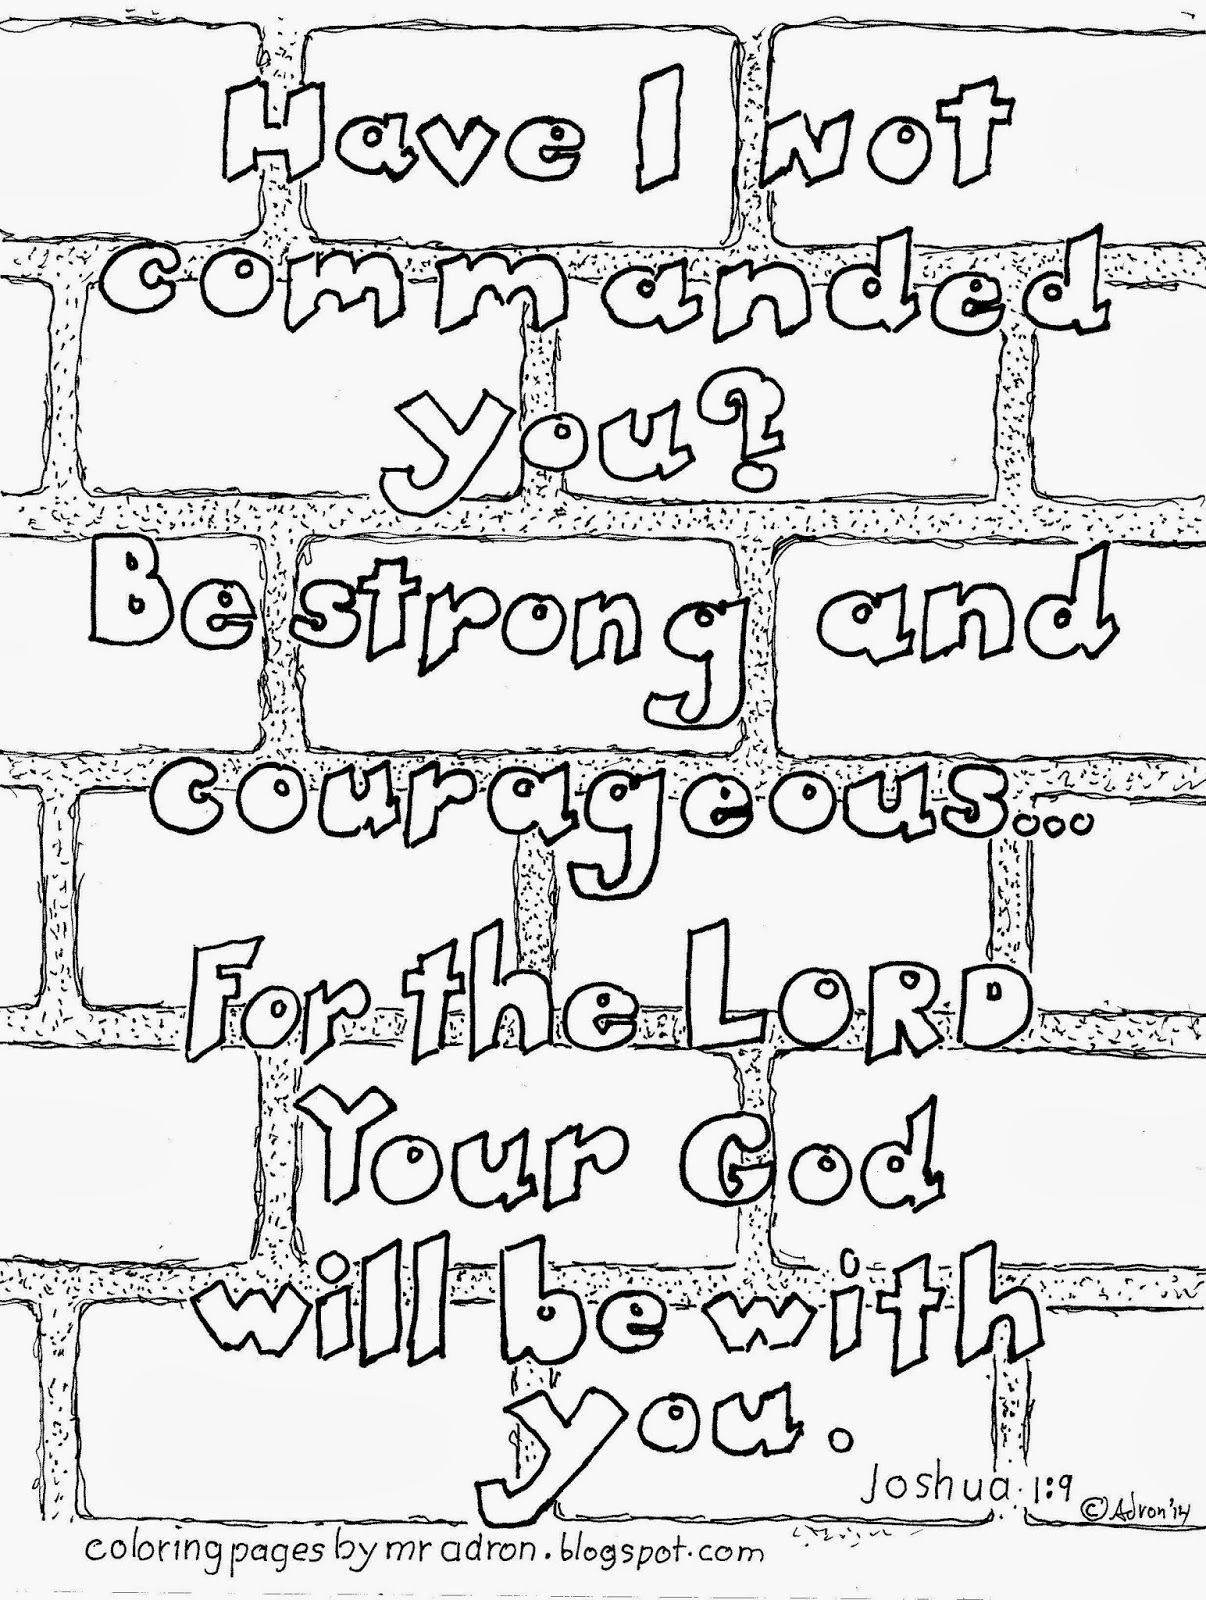 Have I not
commanded
you?
Be strong and
courageous...
For the LORD
Your God
will be with
you.
Joshua 1:9
© Adron '14
coloring pages by mr adron.blogspot.com